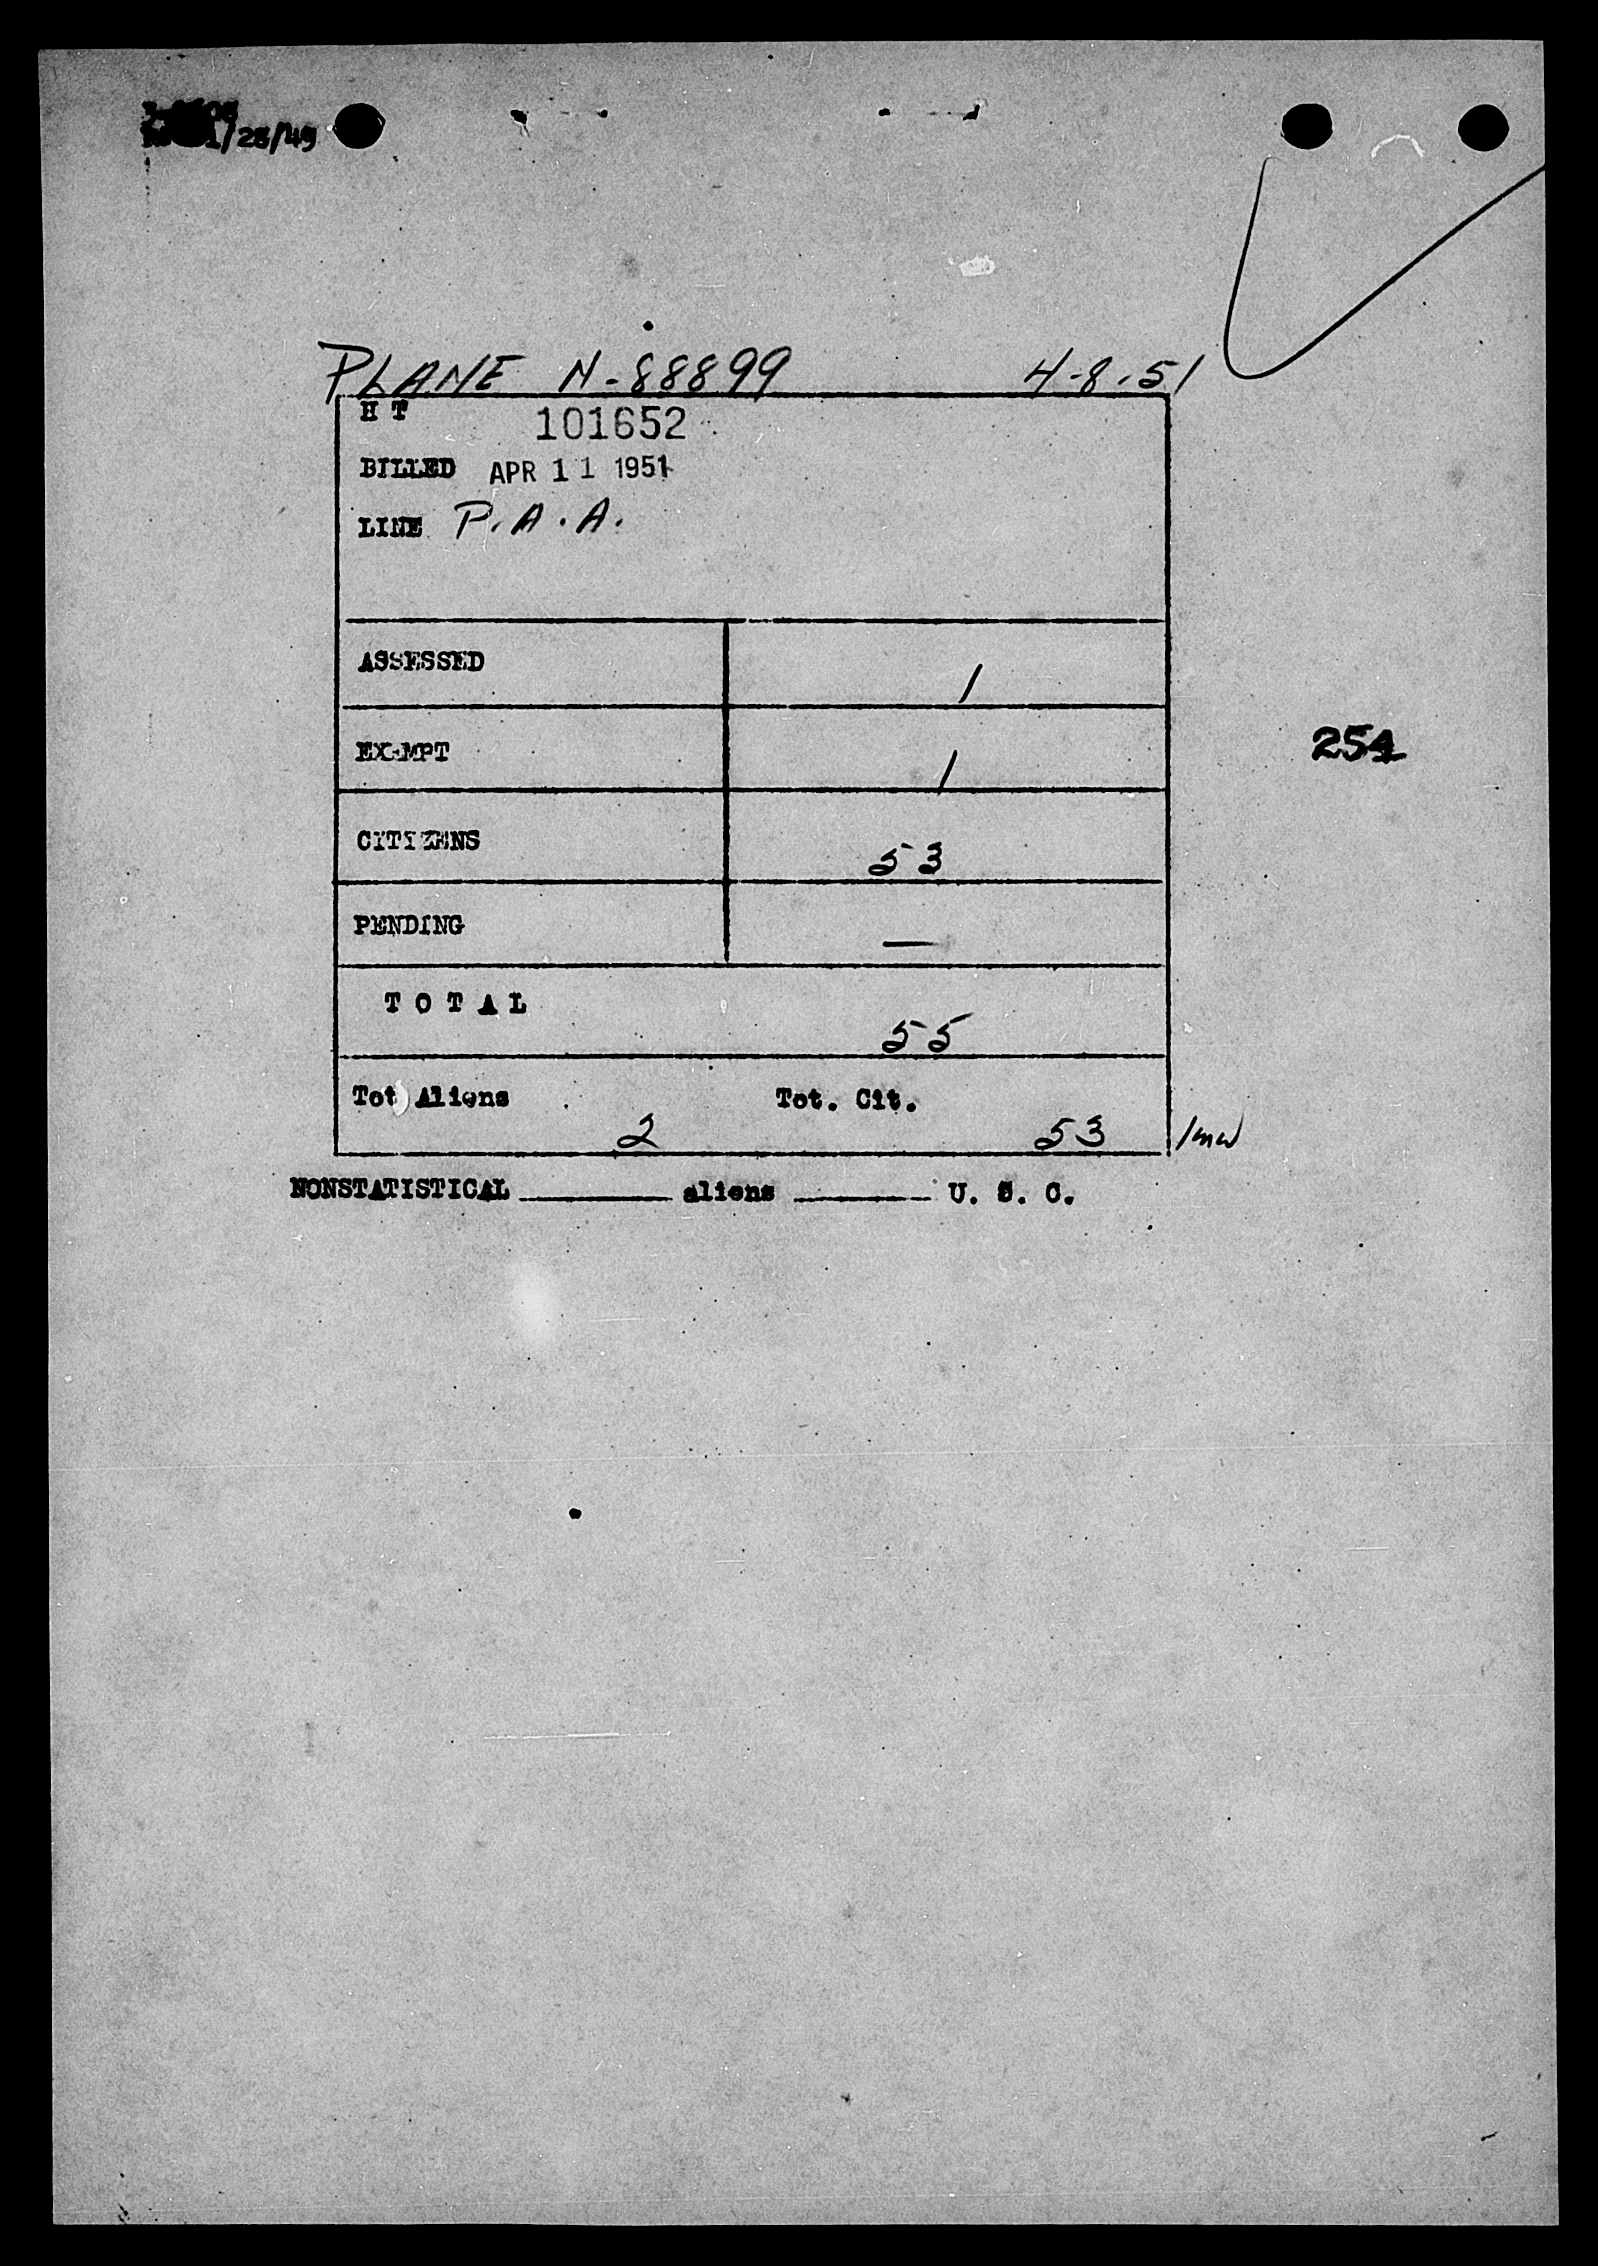 1/28/49
PLANE N-88899 4-8-51
H T 101652
BILLED APR 11 1951
LINE P.A.A.
ASSESSED 1
EXEMPT 1
254
CITIZENS 53
PENDING —
T O T A L 55
Tot Aliens 2 Tot. Cit. 53
NONSTATISTICAL ______ aliens ______ U. S. C.